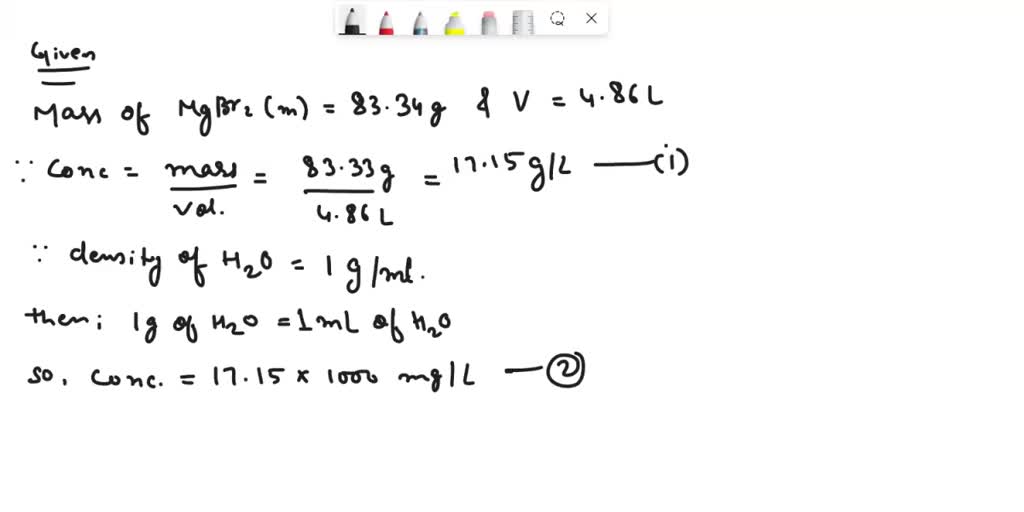 Given
Mass of MgBr2 (m) = 83.34g & V = 4.86L
∵ Conc = mass/vol. = 83.33g/4.86L = 17.15 g/L —(i)
∵ density of H2O = 1 g/ml.
then; 1g of H2O = 1mL of H2O
so, conc. = 17.15 × 1000 mg/L —②